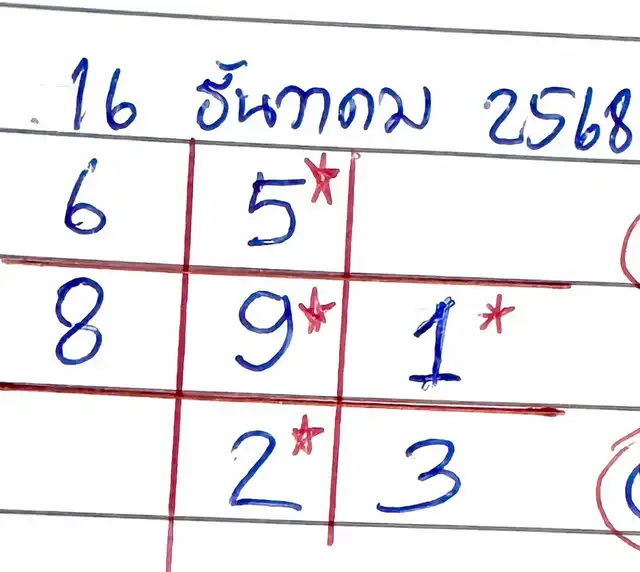 16 ธันวาคม 2568
6 5*
8 9* 1*
2* 3